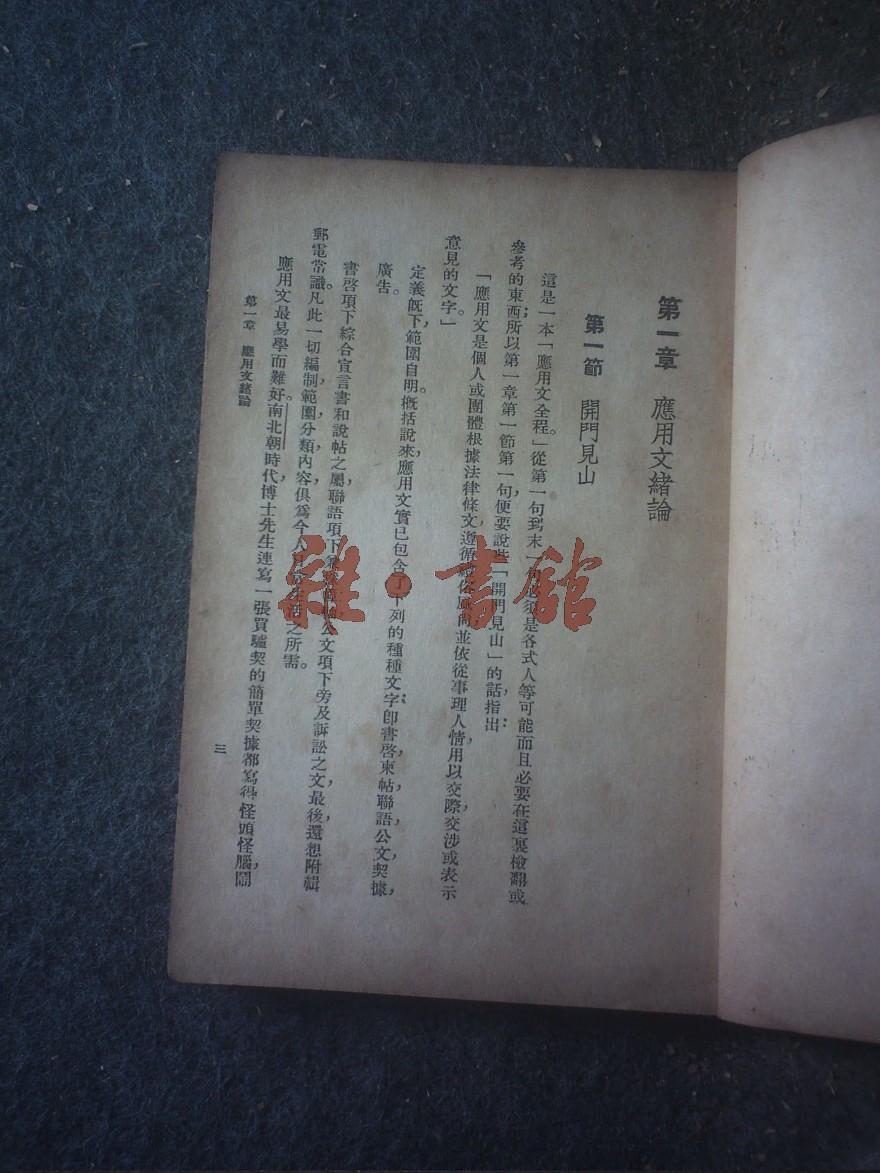 第一章 應用文緒論
第一節 開門見山
這是一本「應用文全程。」從第一句到末一句必須是各式人等可能而且必要在這裏檢翻或
參考的東西;所以第一章第一節第一句,便要說些「開門見山」的話,指出:
「應用文是個人或團體根據法律條文,遵循 俗風尚並依從事理人情,用以交際交涉或表示
意見的文字。」
定義旣下,範圍自明。槪括說來,應用文實已包含了下列的種種文字;卽書啓,柬帖,聯語,公文,契據,
廣告。
書啓項下,綜合宣言書和說帖之屬,聯語項下, 公文項下,旁及訴訟之文,最後,還想附輯
郵電常識。凡此一切編制,範圍,分類,內容,俱爲今人日 生活之所需。
應用文最易學而難好。南北朝時代,博士先生連寫一張買驢契的簡單契據都寫得怪頭怪腦,鬧
第一章 應用文緒論
三
雜·書館